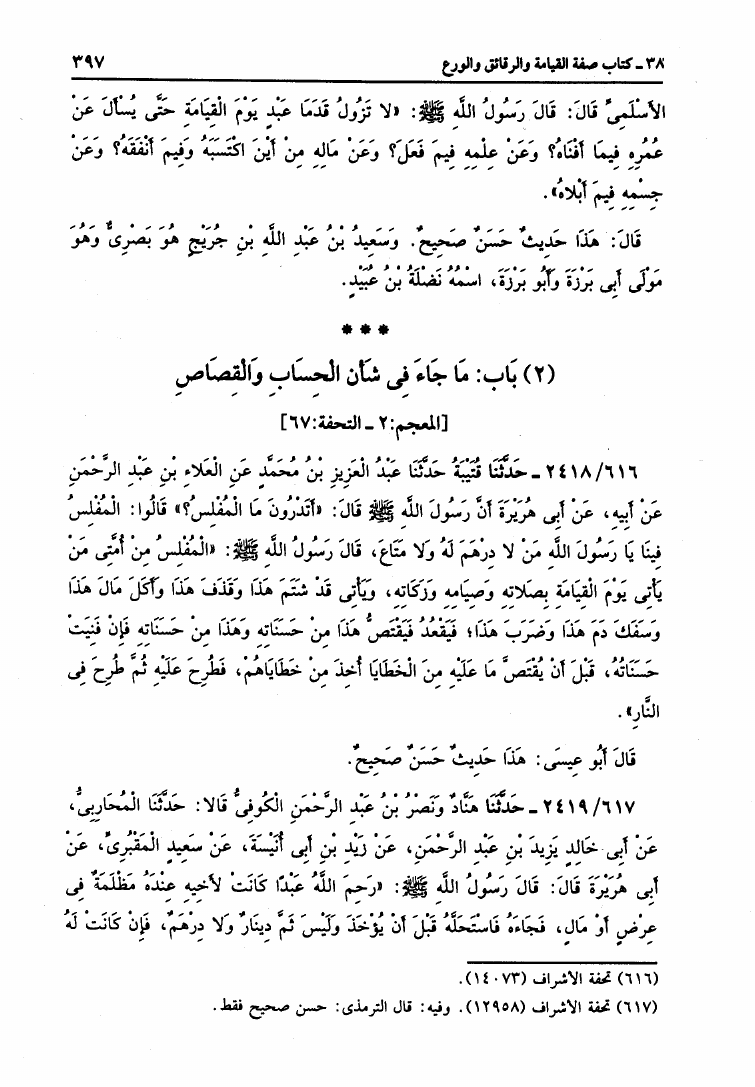 ٣٨ - كتاب صفة القيامة والرقائق والورع ٣٩٧
الأَسْلَمِىِّ قَالَ: قَالَ رَسُولُ اللَّهِ ﷺ: «لا تَزُولُ قَدَمَا عَبْدٍ يَوْمَ الْقِيَامَةِ حَتَّى يُسْأَلَ عَنْ
عُمُرِهِ فِيمَا أَفْنَاهُ؟ وَعَنْ عِلْمِهِ فِيمَ فَعَلَ؟ وَعَنْ مَالِهِ مِنْ أَيْنَ اكْتَسَبَهُ وَفِيمَ أَنْفَقَهُ؟ وَعَنْ
جِسْمِهِ فِيمَ أَبْلاهُ».
قَالَ: هَذَا حَدِيثٌ حَسَنٌ صَحِيحٌ. وَسَعِيدُ بْنُ عَبْدِ اللَّهِ بْنِ جُرَيْجٍ هُوَ بَصْرِىٌّ وَهُوَ
مَوْلَى أَبِى بَرْزَةَ وَأَبُو بَرْزَةَ، اسْمُهُ نَضْلَةُ بْنُ عُبَيْدٍ.
***
(٢) بَاب: مَا جَاءَ فِى شَأْنِ الْحِسَابِ وَالْقِصَاصِ
[المعجم:٢ - التحفة:٦٧]
٢٤١٨/٦١٦ - حَدَّثَنَا قُتَيْبَةُ حَدَّثَنَا عَبْدُ الْعَزِيزِ بْنُ مُحَمَّدٍ عَنِ الْعَلاءِ بْنِ عَبْدِ الرَّحْمَنِ
عَنْ أَبِيهِ، عَنْ أَبِى هُرَيْرَةَ أَنَّ رَسُولَ اللَّهِ ﷺ قَالَ: «أَتَدْرُونَ مَا الْمُفْلِسُ؟» قَالُوا: الْمُفْلِسُ
فِينَا يَا رَسُولَ اللَّهِ مَنْ لا دِرْهَمَ لَهُ وَلا مَتَاعَ، قَالَ رَسُولُ اللَّهِ ﷺ: «الْمُفْلِسُ مِنْ أُمَّتِى مَنْ
يَأْتِى يَوْمَ الْقِيَامَةِ بِصَلاتِهِ وَصِيَامِهِ وَزَكَاتِهِ، وَيَأْتِى قَدْ شَتَمَ هَذَا وَقَذَفَ هَذَا وَأَكَلَ مَالَ هَذَا
وَسَفَكَ دَمَ هَذَا وَضَرَبَ هَذَا؛ فَيَقْعُدُ فَيَقْتَصُّ هَذَا مِنْ حَسَنَاتِهِ وَهَذَا مِنْ حَسَنَاتِهِ فَإِنْ فَنِيَتْ
حَسَنَاتُهُ، قَبْلَ أَنْ يُقْتَصَّ مَا عَلَيْهِ مِنَ الْخَطَايَا أُخِذَ مِنْ خَطَايَاهُمْ، فَطُرِحَ عَلَيْهِ ثُمَّ طُرِحَ فِى
النَّارِ».
قَالَ أَبُو عِيسَى: هَذَا حَدِيثٌ حَسَنٌ صَحِيحٌ.
٢٤١٩/٦١٧ - حَدَّثَنَا هَنَّادٌ وَنَصْرُ بْنُ عَبْدِ الرَّحْمَنِ الْكُوفِىُّ قَالا: حَدَّثَنَا الْمُحَارِبِىُّ،
عَنْ أَبِى خَالِدٍ يَزِيدَ بْنِ عَبْدِ الرَّحْمَنِ، عَنْ زَيْدِ بْنِ أَبِى أُنَيْسَةَ، عَنْ سَعِيدٍ الْمَقْبُرِىِّ، عَنْ
أَبِى هُرَيْرَةَ قَالَ: قَالَ رَسُولُ اللَّهِ ﷺ: «رَحِمَ اللَّهُ عَبْدًا كَانَتْ لأَخِيهِ عِنْدَهُ مَظْلَمَةٌ فِى
عِرْضٍ أَوْ مَالٍ، فَجَاءَهُ فَاسْتَحَلَّهُ قَبْلَ أَنْ يُؤْخَذَ وَلَيْسَ ثَمَّ دِينَارٌ وَلا دِرْهَمٌ، فَإِنْ كَانَتْ لَهُ
(٦١٦) تحفة الأشراف (١٤٠٧٣).
(٦١٧) تحفة الأشراف (١٢٩٥٨). وفيه: قال الترمذى: حسن صحيح فقط.